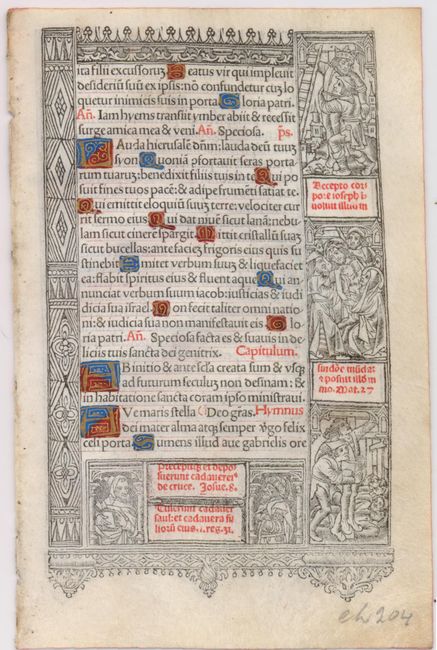 ita filii excussoruz Beatus vir qui impleuit
desideriū suū ex ipsis: nō confundetur cuz lo
quetur inimicis suis in porta. Gloria patri.
Añ. Iam hyems transiit ymber abiit & recessit
surge amica mea & veni. Añ. Speciosa. ps.
LAuda hierusalē dñm: lauda deū tuuz
syon Quoniā pfortauit seras porta
rum tuaruz: benedixit filiis tuis in te Qui po
suit fines tuos pacē: & adipe frumēti satiat te.
Qui emittit eloquiū suuz terre: velociter cur
rit sermo eius Qui dat niuē sicut lanā: nebu
lam sicut cinerē spargit. Mittit cristallū suaz
sicut bucellas: ante faciez frigoris eius quis su
stinebit Emitet verbum suuz & liquefaciet
ea: flabit spiritus eius & fluent aque Qui an
nunciat verbum suum iacob: iusticias & iudi
dicia sua israel. Non fecit taliter omni natio
ni: & iudicia sua non manifestauit eis Glo
ria patri. Añ. Speciosa facta es & suauis in de
liciis tuis sancta dei genitrix. Capitulum.
AB initio & ante secla creata sum & vsq3
ad futurum seculuz non desinam: &
in habitatione sancta coram ipso ministraui.
AVe maris stella Deo gras. Hymnus
dei mater alma atq3 semper v̇go felix
celi porta Sumens illud aue gabrielis ore
Recepto cor
pore ioseph
uoluit illud in
sindōe mūda:
et posuit illud
mo. Mat. 27
Precepitq3 et depo
suerunt cadauer ei9
de cruce. Josue. 8.
Tulerunt cadauer
saul: et cadauera fi
liorū eius. i. reg. 31.
eh 204